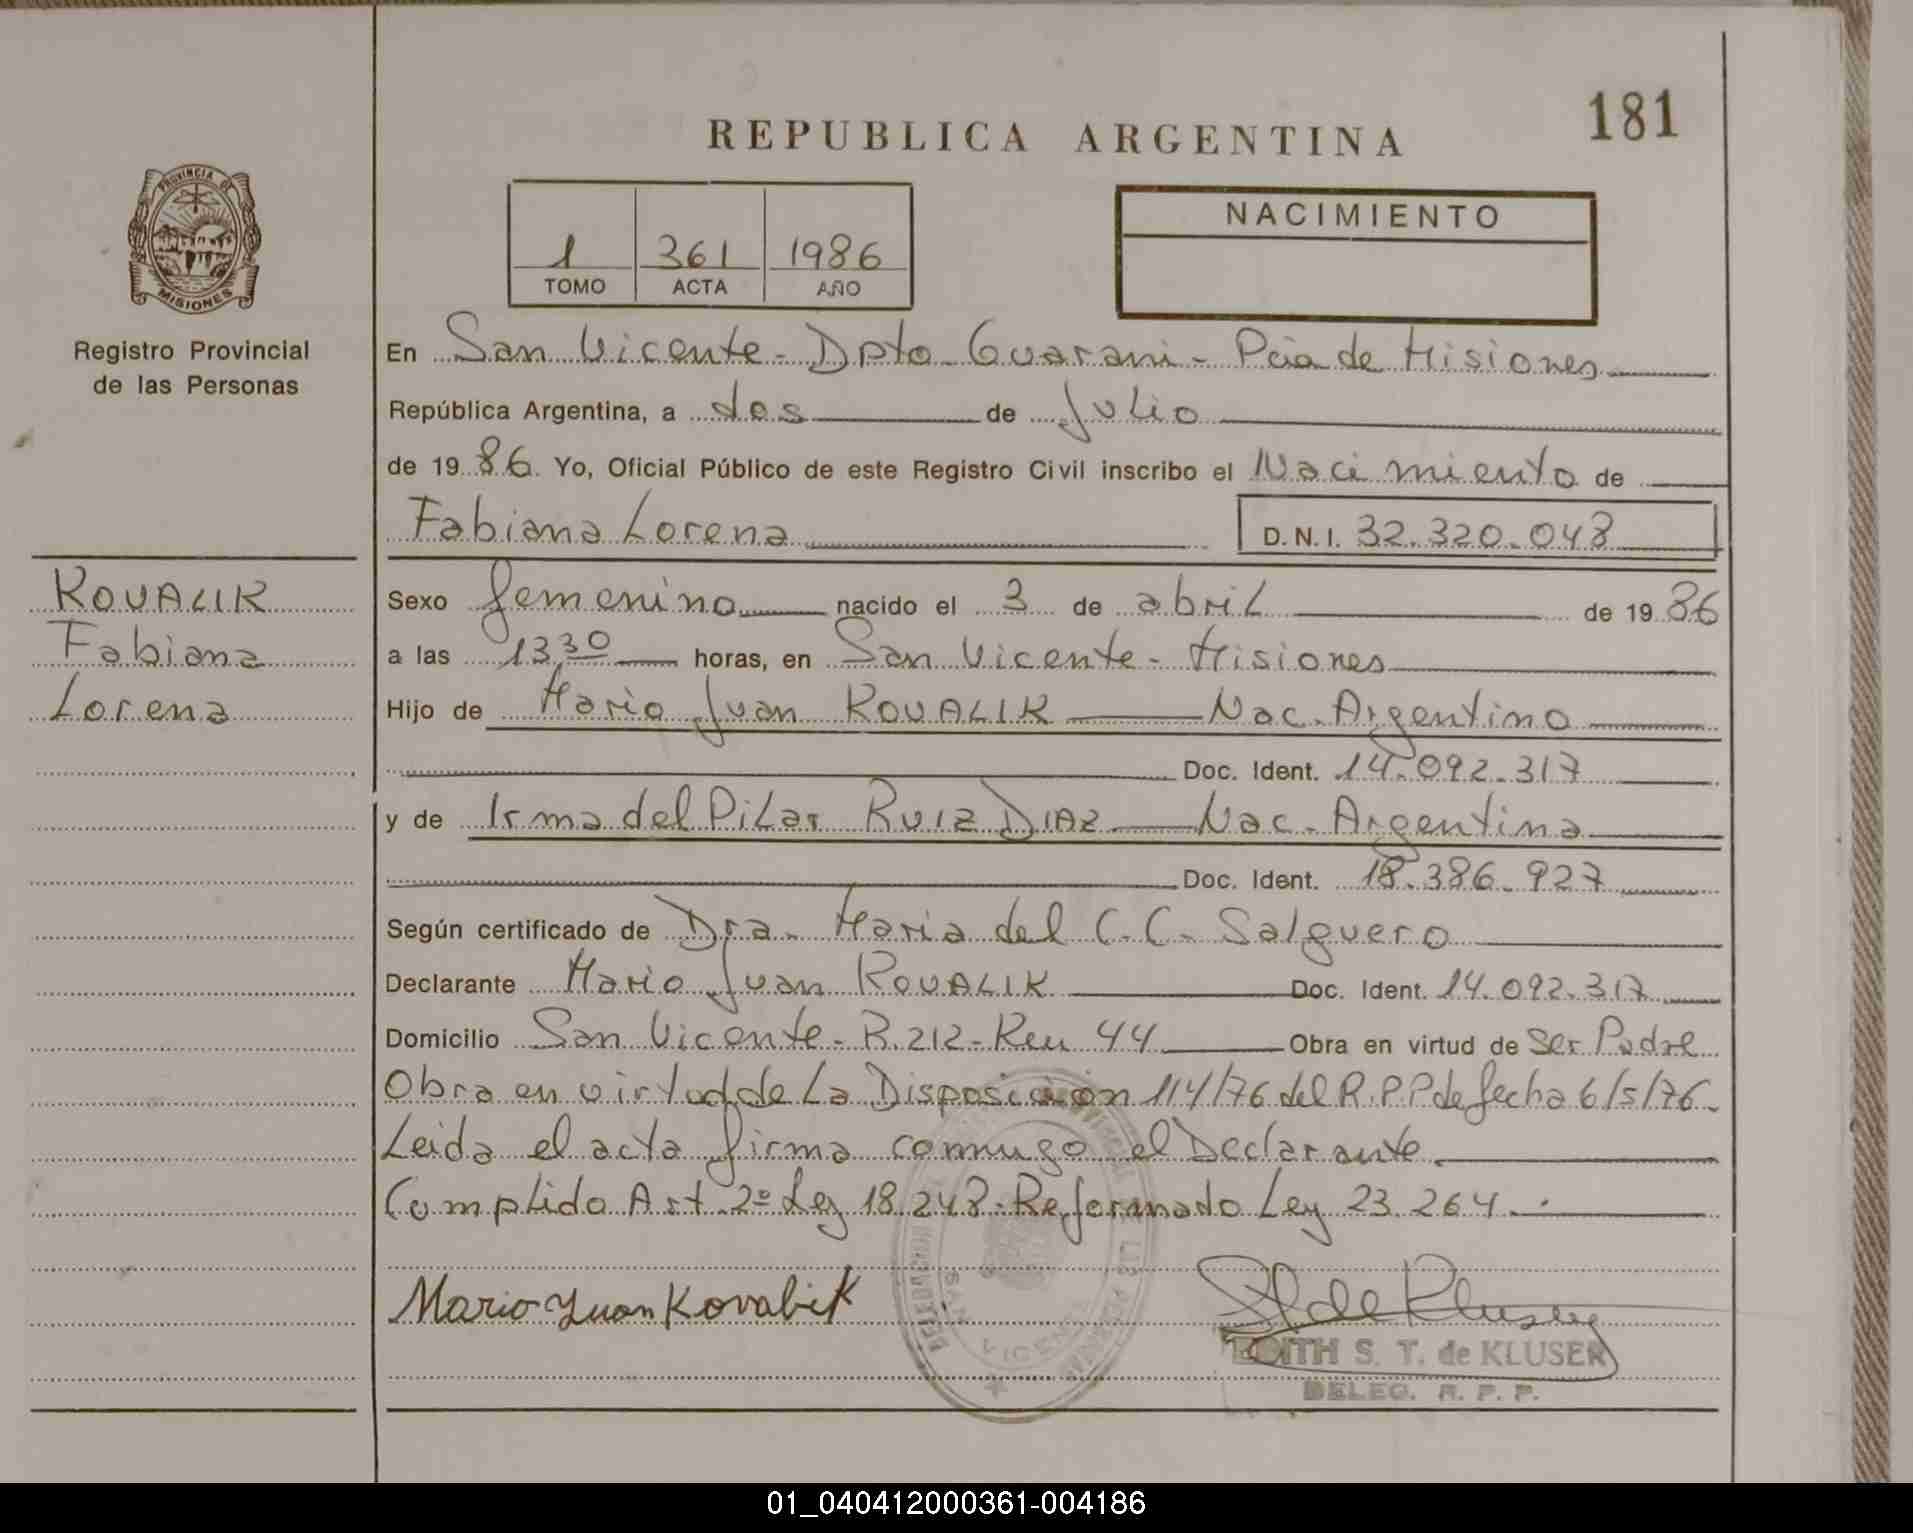 181
REPUBLICA ARGENTINA
PROVINCIA DE
MISIONES
Registro Provincial
de las Personas
1 361 1986
TOMO ACTA AÑO
NACIMIENTO
En San Vicente - Dpto Guarani - Pcia de Misiones
República Argentina, a dos de Julio
de 1986. Yo, Oficial Público de este Registro Civil inscribo el Nacimiento de
Fabiana Lorena D.N.I. 32.320.048
KOVALIK
Fabiana
Lorena
Sexo femenino nacido el 3 de abril de 1986
a las 13,30 horas, en San Vicente - Misiones
Hijo de Mario Juan KOVALIK Nac. Argentino
Doc. Ident. 14.092.317
y de Irma del Pilar RUIZ DIAZ Nac. Argentina
Doc. Ident. 18.386.927
Según certificado de Dra. Maria del C.C. Salguero
Declarante Mario Juan KOVALIK Doc. Ident. 14.092.317
Domicilio San Vicente - R.212 - Km 44 Obra en virtud de Ser Padre
Obra en virtud de La Disposición 114/76 del R.P.P de fecha 6/5/76.
Leida el acta firma conmigo el Declarante.
Cumplido Art. 2º Ley 18.248. Reformado Ley 23.264.
Mario Juan Kovalik
de Kluser
EDITH S. T. de KLUSER
DELEG. R. P. P.
SAN VICENTE
01_040412000361-004186